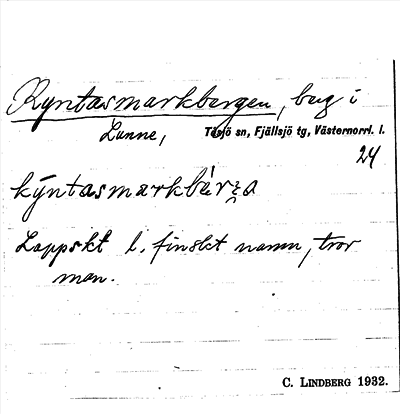 Kyntasmarkbergen, berg i
Lunne, Tåsjö sn, Fjällsjö tg, Västernorrl. l.
24
kýntasmarkbárʒa
Lappskt l. finskt namn, tror
man.
C. LINDBERG 1932.